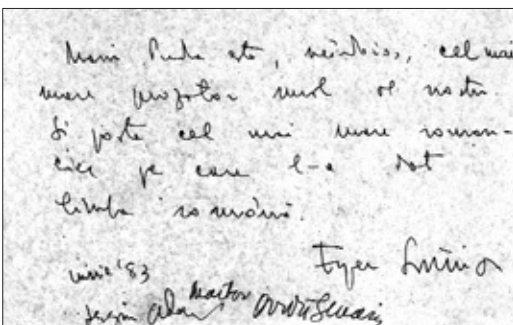 Marin Preda este, neîndoios, cel mai
mare prozator rural al nostru.
Și poate cel mai mare roman-
cier pe care l-a dat
limba română.
iunie '83
Eugen Simion
Martor